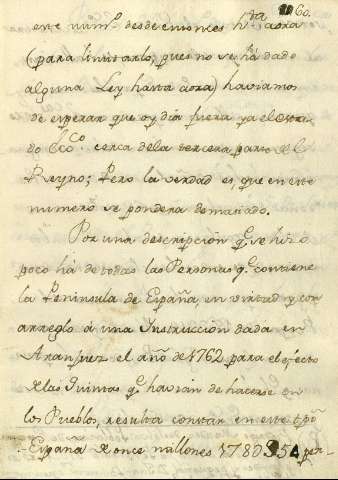 60.
este num.º desde entonces h.ta aora
(para limitarlo, pues no se ha dado
alguna Ley hasta aora) haviamos
de esperar que oy dia fuera ya el Esta-
do Ecc.º cerca de la tercera parte del
Reyno; Pero la verdad es, que en este
numero se pondera demasiado.
Por una descripción q.e se hizo
poco há de todas las Personas q.e contiene
la Peninsula de España, en virtud y con
arreglo á una Instrucción dada en
Aranjuez el año de 1762 para el efecto
de las Quintas q.e havian de hacerse en
los Pueblos, resulta constar en este tpõ
España de once millones 178